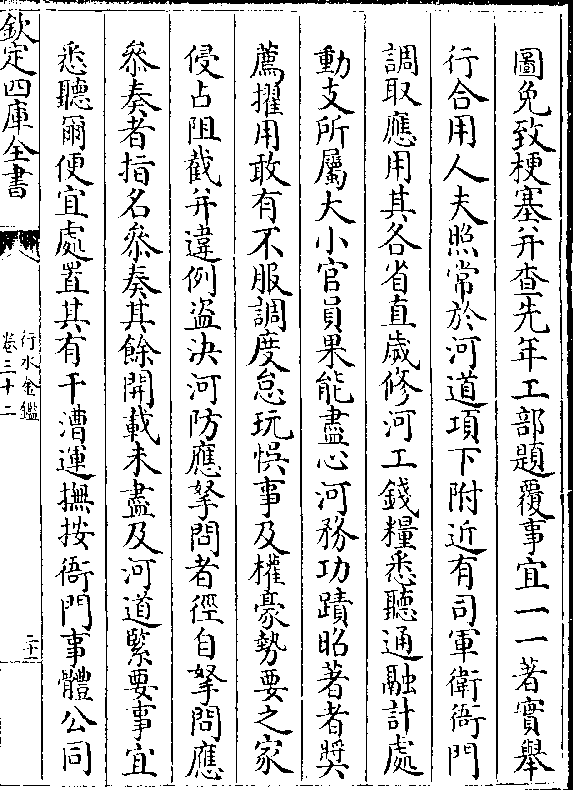 圖免致梗塞并查先年工部題覆事宜一一著實舉
行合用人夫照常於河道項下附近有司軍衛衙門
調取應用其各省直歲修河工錢糧悉聽通融計處
動支所屬大小官員果能盡心河務功蹟昭著者奬
薦擢用敢有不服調度怠玩悞事及權豪勢要之家
侵占阻截并違例盜決河防應拏問者徑自拏問應
叅奏者指名叅奏其餘開載未盡及河道緊要事宜
悉聽爾便宜處置其有干漕運撫按衙門事體公同
欽定四庫全書
行水金鑑
卷三十二
二十一